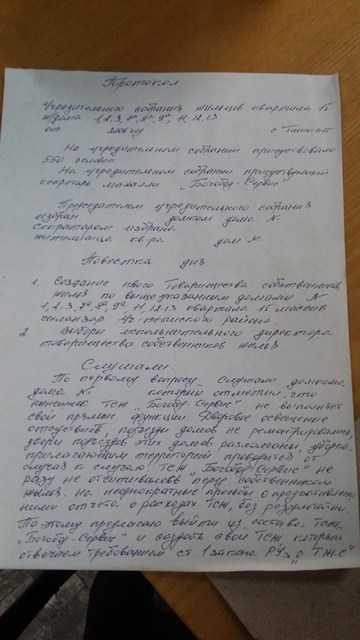 Протокол
Учредительного собрания жильцов квартала 15
ж/дома 1,2,3,7а,8а,9а, 11,12,13
от 200 г. г. Ташкент
На учредительном собрании присутствовали
550 человек
На учредительном собрании присутствующий
секретарь махалли „Богобод-Сервис"
Председателем учредительного собрания
избран домком дома N
Секретарем избрана
жительница кв-ра дом N
Повестка дня
1. Создание нового Товарищества собственников
жилья по вышеуказанным домам N
1,2,3, 11,12,13 квартала 15 массив
Чиланзар района.
2 Выборы исполнительного директора
товарищества собственников жилья
Слушали
По первому вопросу слушали домкома
дома N который отметил, что
нынешнее ТСЖ „Богобод-Сервис" не выполняет
свои прямые функции. Дворовые освещение
отсутствует, подъезды домов не ремонтировались
двери подъездов этих домов разломаны, уборка
прилагающим территорий проводится от
случая к случаю. ТСЖ „Богобод-Сервис" не
разу не отчитывалось перед собственником
жилья. На неоднократные просьбы о предоставлении
ними отчета о расходах ТСЖ, без результатны.
По этому предлагаю выйти из состава ТСЖ
„Богобод-Сервис" и создать свой ТСЖ который
отвечает требованиям ст. 1 закона РУз „О ТЖС"